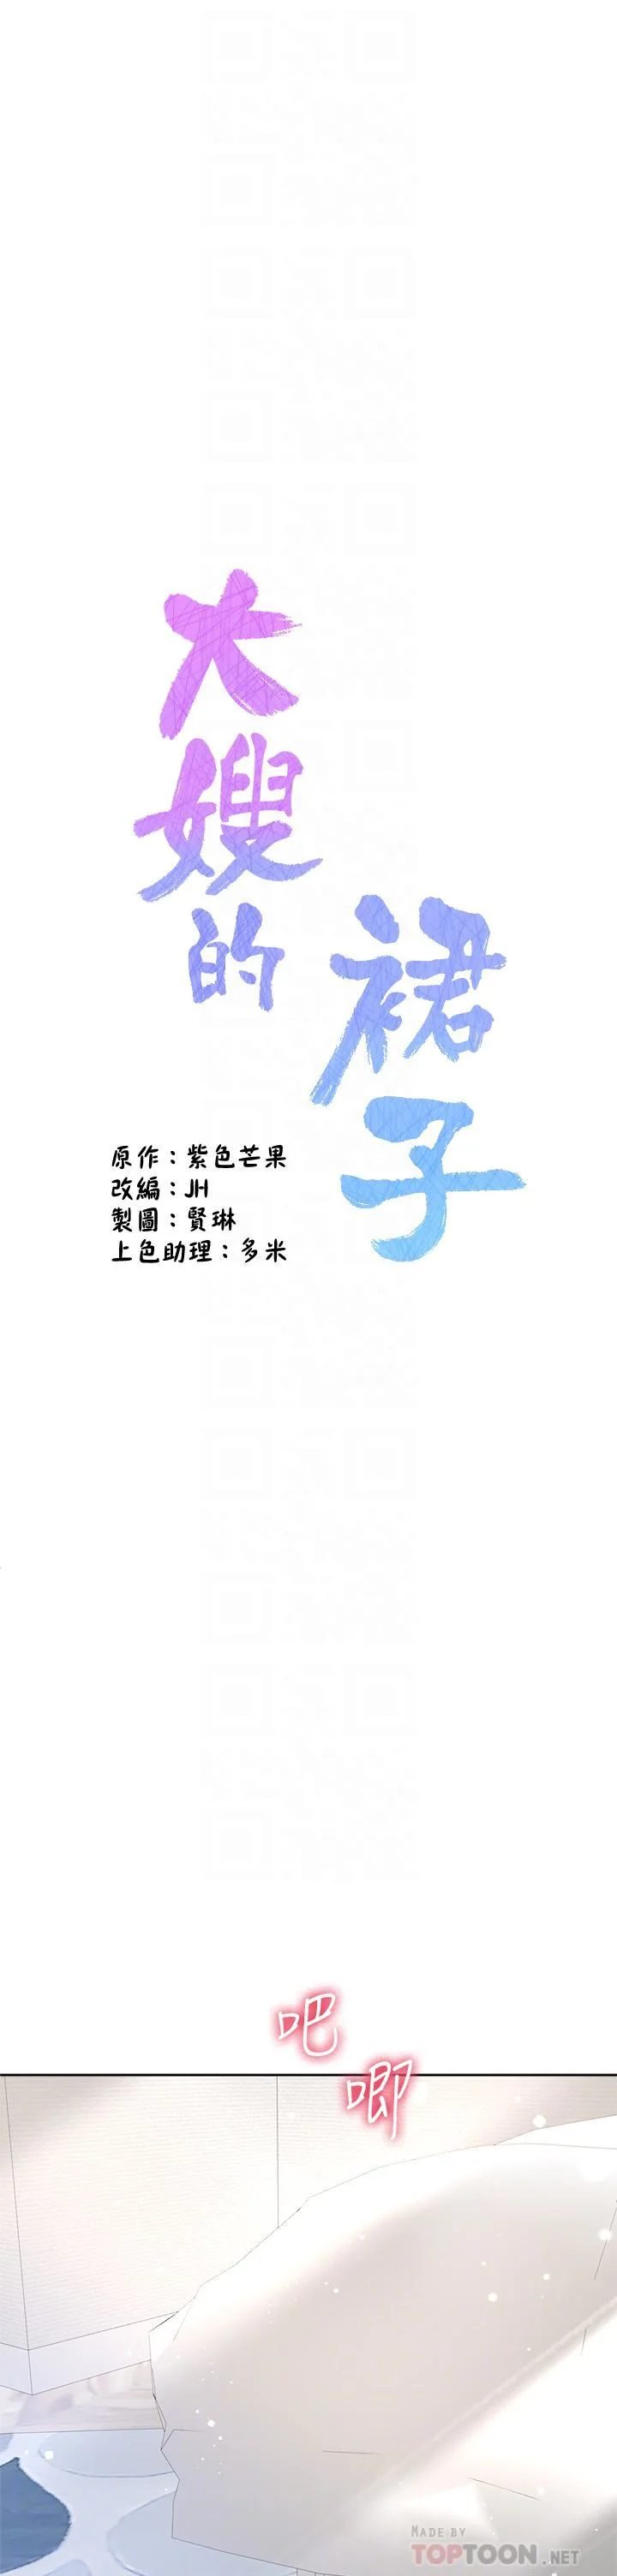 大嫂的
裙子
原作：紫色芒果
改編：JH
製圖：賢琳
上色助理：多米
吧
唧
MADE BY
TOPTOON.NET